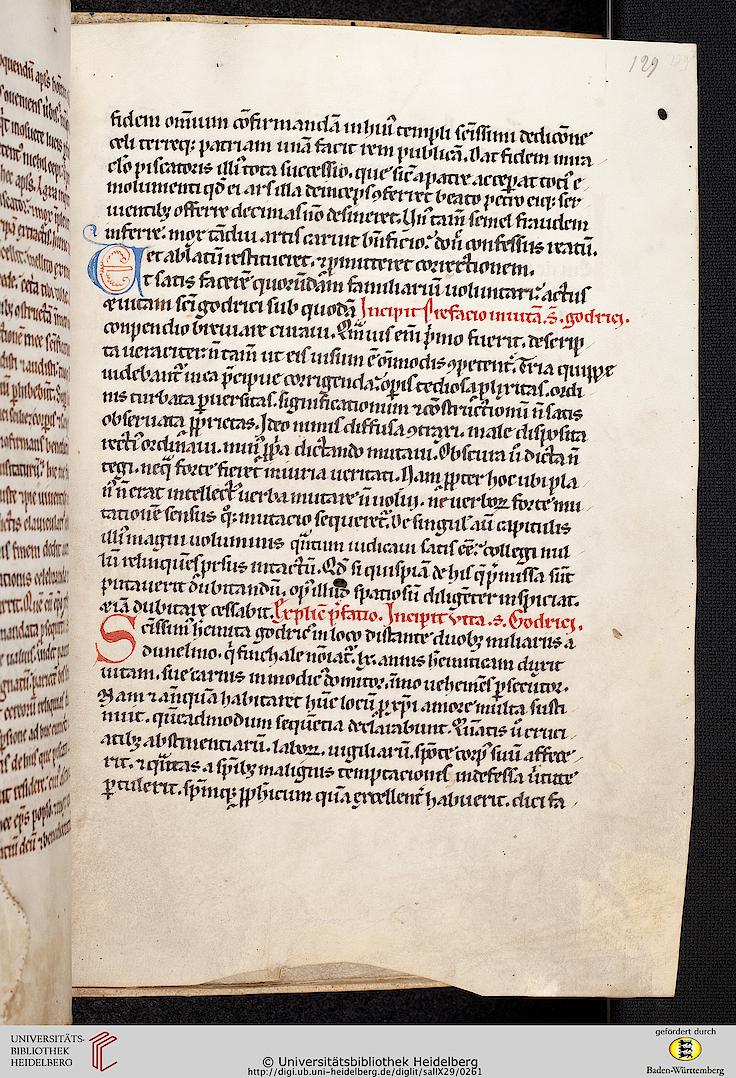 129
fidem om̄ium cōfirmandā in huī templi sc̄issimi dedicōne
celi terreq; patriam unā facit rem publicā. Dat fidem mira
clo piscatoris illī tota successio. que sic̄ a patre acceperat toci᷒ e
molumenti qd̄ ei ars illa deinceps ꝯferret beato petro eiq; ser
uientib; offerre decimas nō desineret. Un᷒ tam̄ semel fraudem
inferre. mox tādiu artis caruit bn̄ficio. don̄ confessus reatū.
et ablatū restitueret. ⁊ ꝓmitteret correctionem.
Et satis facerē quorūdam familiariū voluntati. actus
Incipit prefacio in uitā. S. godrici.
⁊ uitam sc̄i godrici sub quodā
conpendio breuiare curaui. Qm̄uis eni p̄mo fuerit. descrip
ta ueraciter. n̄ tam̄ ut eis uisum ē om̄imodis ꝯpetent᷒. Or̄ia quippe
uidebant᷒ in ea p̄cipue corrigenda. op̄is tediosa ꝓlixitas. ordi
nis turbata ꝑuersitas. significationum ⁊ cōstructionū n̄ satis
obseruata ꝓprietas. Ideo nimis diffusa ꝯtraxi. male disposita
recti᷒ ordinaui. min᷒ ꝓpa dictando mutaui. Obscura ū dicta n̄
tegi. neq̄ forte fieret iniuria ueritati. Nam ꝓpter hoc ubi pla
n᷒ n̄ erat intellect᷒ uerba mutare n̄ uolui. ne uerboꝝ forte mu
tationē sensus q; mutacio sequeret᷒. De singul᷒ aū capitulis
illi᷒ magni uoluminis quātum iudicaui satis eē. collegi nul
lū relinquēs prsus intactū. Qd̄ si quispiā de his q̄ p̄missa sūt
putauerit dubitandū. op᷒ illud spatiosū diligēter inspiciat.
⁊ iā dubitare cessabit. Explic̄ p̄fatio. Incipit vita. s. Godrici.
Sc̄issimi heremita godric᷒ in loco distante duob; miliariis a
dunelmo. q̄ finchale nōiat᷒. lx. annis hēmiticam duxit
uitam. sue carnis inmodic᷒ domitor. immo uehemēs ꝑsecutor.
Nam ⁊ anteq̄uā habitaret hūc locū ꝓ xp̄i amore multa susti
nuit. quēadmodum sequētia declarabunt. Quātis ū cruci
atib; abstinentiarū. laboꝝ. uigiliarū. spōte corp᷒ suū affece
rit. ⁊ q̄uātas a sp̄ib; malignis temptaciones indefessa ūtute
ꝑtulerit. sp̄mq; ꝓph̄icum quā excellent᷒ habuerit. dici fa
UNIVERSITÄTS-
BIBLIOTHEK
HEIDELBERG
© Universitätsbibliothek Heidelberg
http://digi.ub.uni-heidelberg.de/diglit/sallX29/0261
gefördert durch
Baden-Württemberg